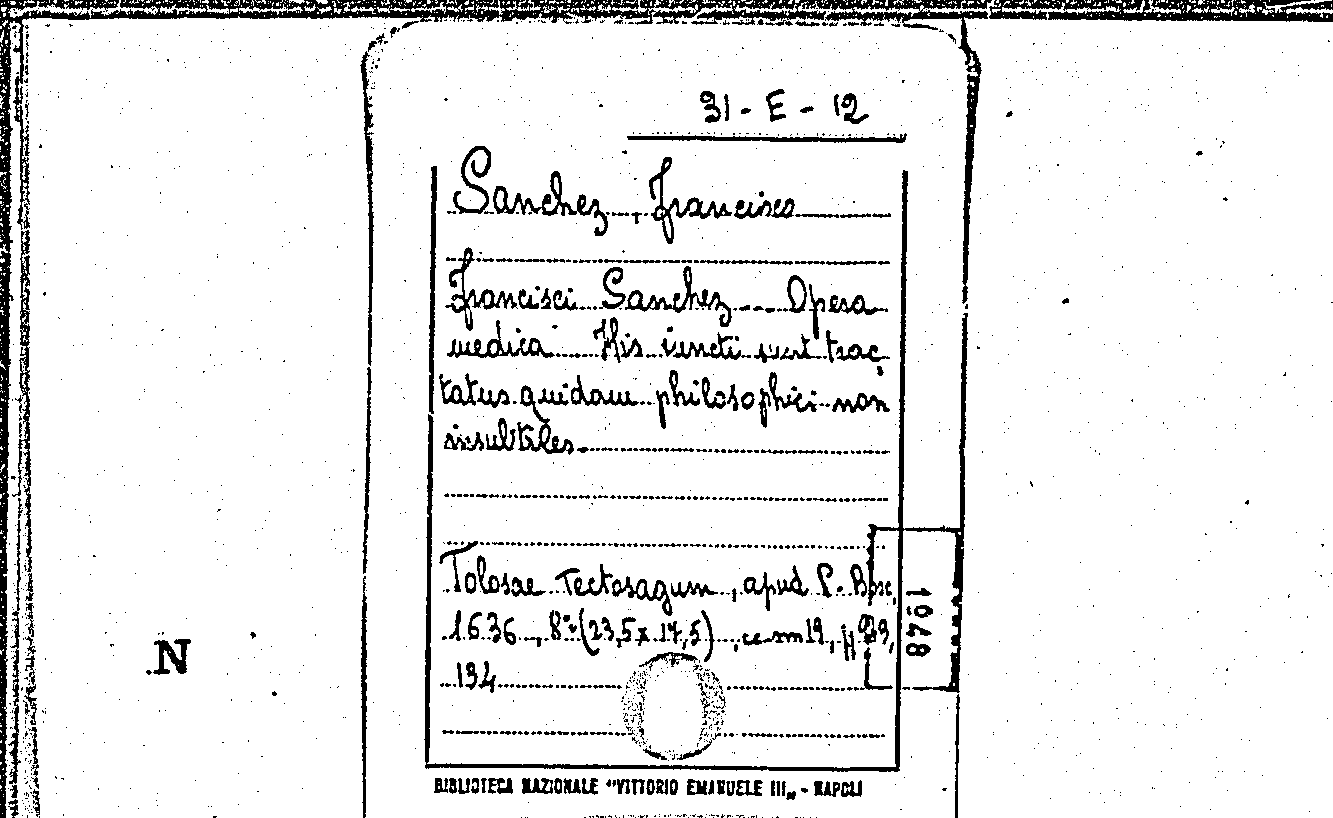 31-E-12
Sanchez, Francisco
Francisci Sanchez... Opera
medica. His iuncti sunt trac,
tatus quidam philosophici non
insubtiles.
Tolosae Tectosagum, apud P. Bosc,
1636, 8° (23,5x17,5), cc. nn 19, pp 943,
134
1948
N
BIBLIOTECA NAZIONALE "VITTORIO EMANUELE III„ - NAPOLI